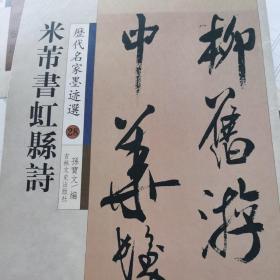 歷代名家墨迹選
28
米芾書虹縣詩
孫寶文 編
吉林文史出版社
柳舊游
中